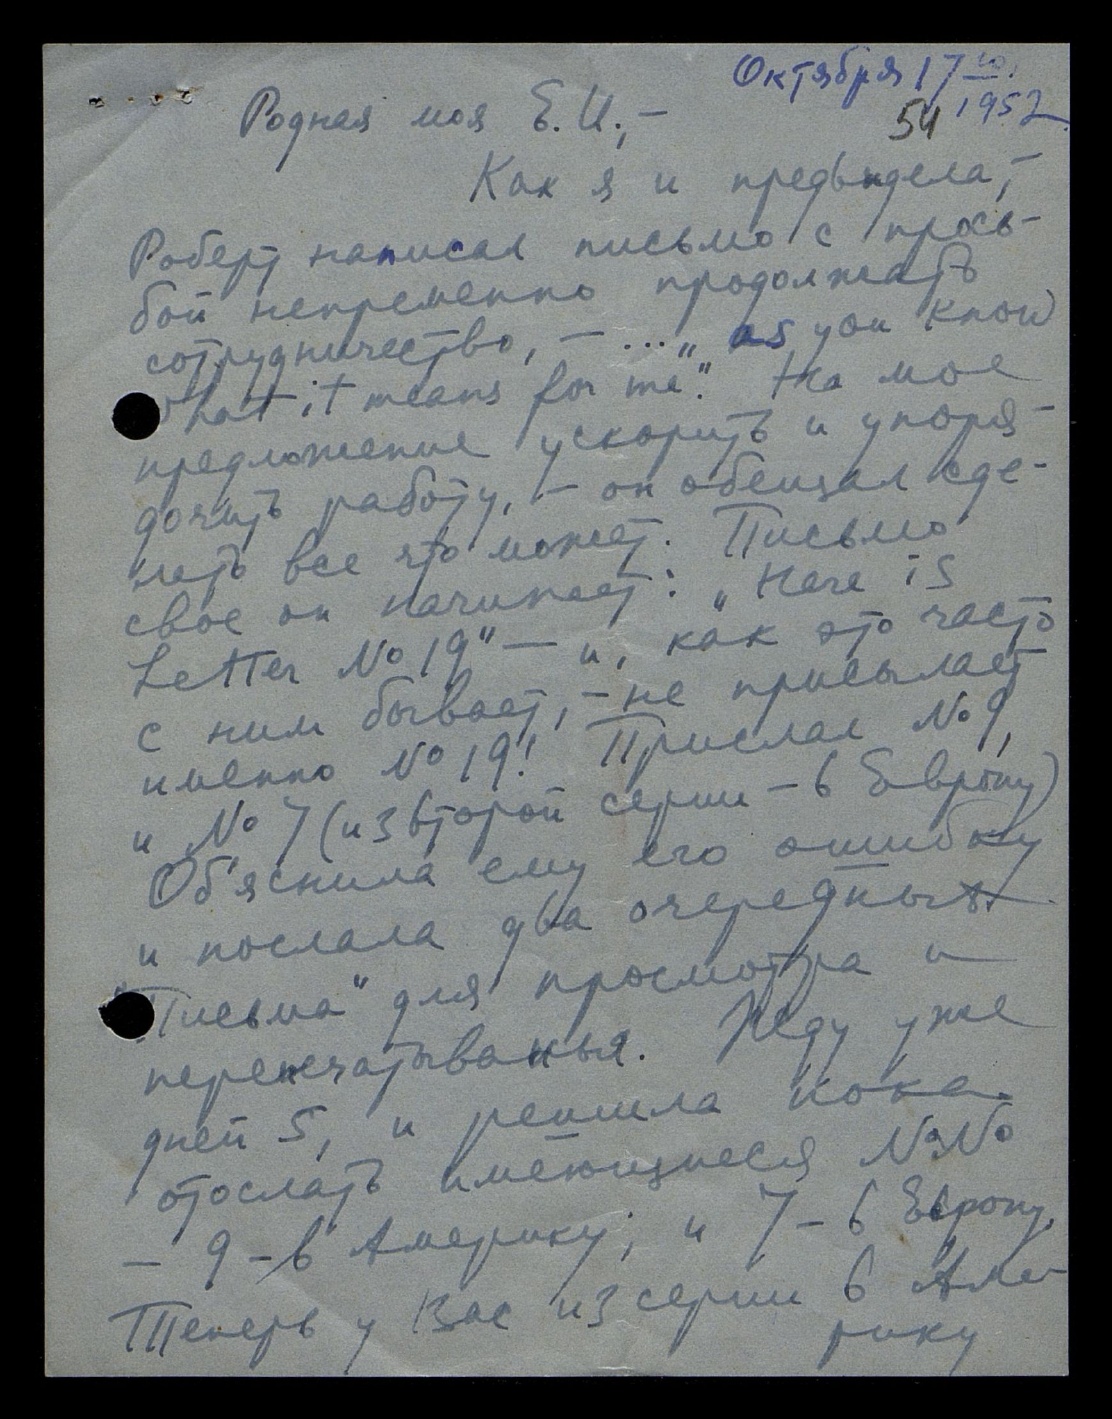 Октября 17го,
1952.
54
Родная моя Е.И.,—
Как я и предвидела,—
Роберт написал письмо с прось-
бой непременно продолжать
сотрудничество, — ... „as you know
what it means for me". На мое
предложение ускорить и упоря-
дочить работу, — он обещал сде-
лать все что может. Письмо
свое он начинает: „Here is
Letter No 19" — и, как это часто
с ним бывает, — не присылает
именно No 19! Прислал No 9,
и No 7 (из второй серии — в Европу)
Об'яснила ему его ошибку
и послала два очередных
"Письма" для просмотра и
перепечатыванья. Жду уже
дней 5, и решила пока
отослать имеющиеся NoNo
— 9 — в Америку; и 7 — в Европу.
Теперь у Вас из серии в Аме-
рику